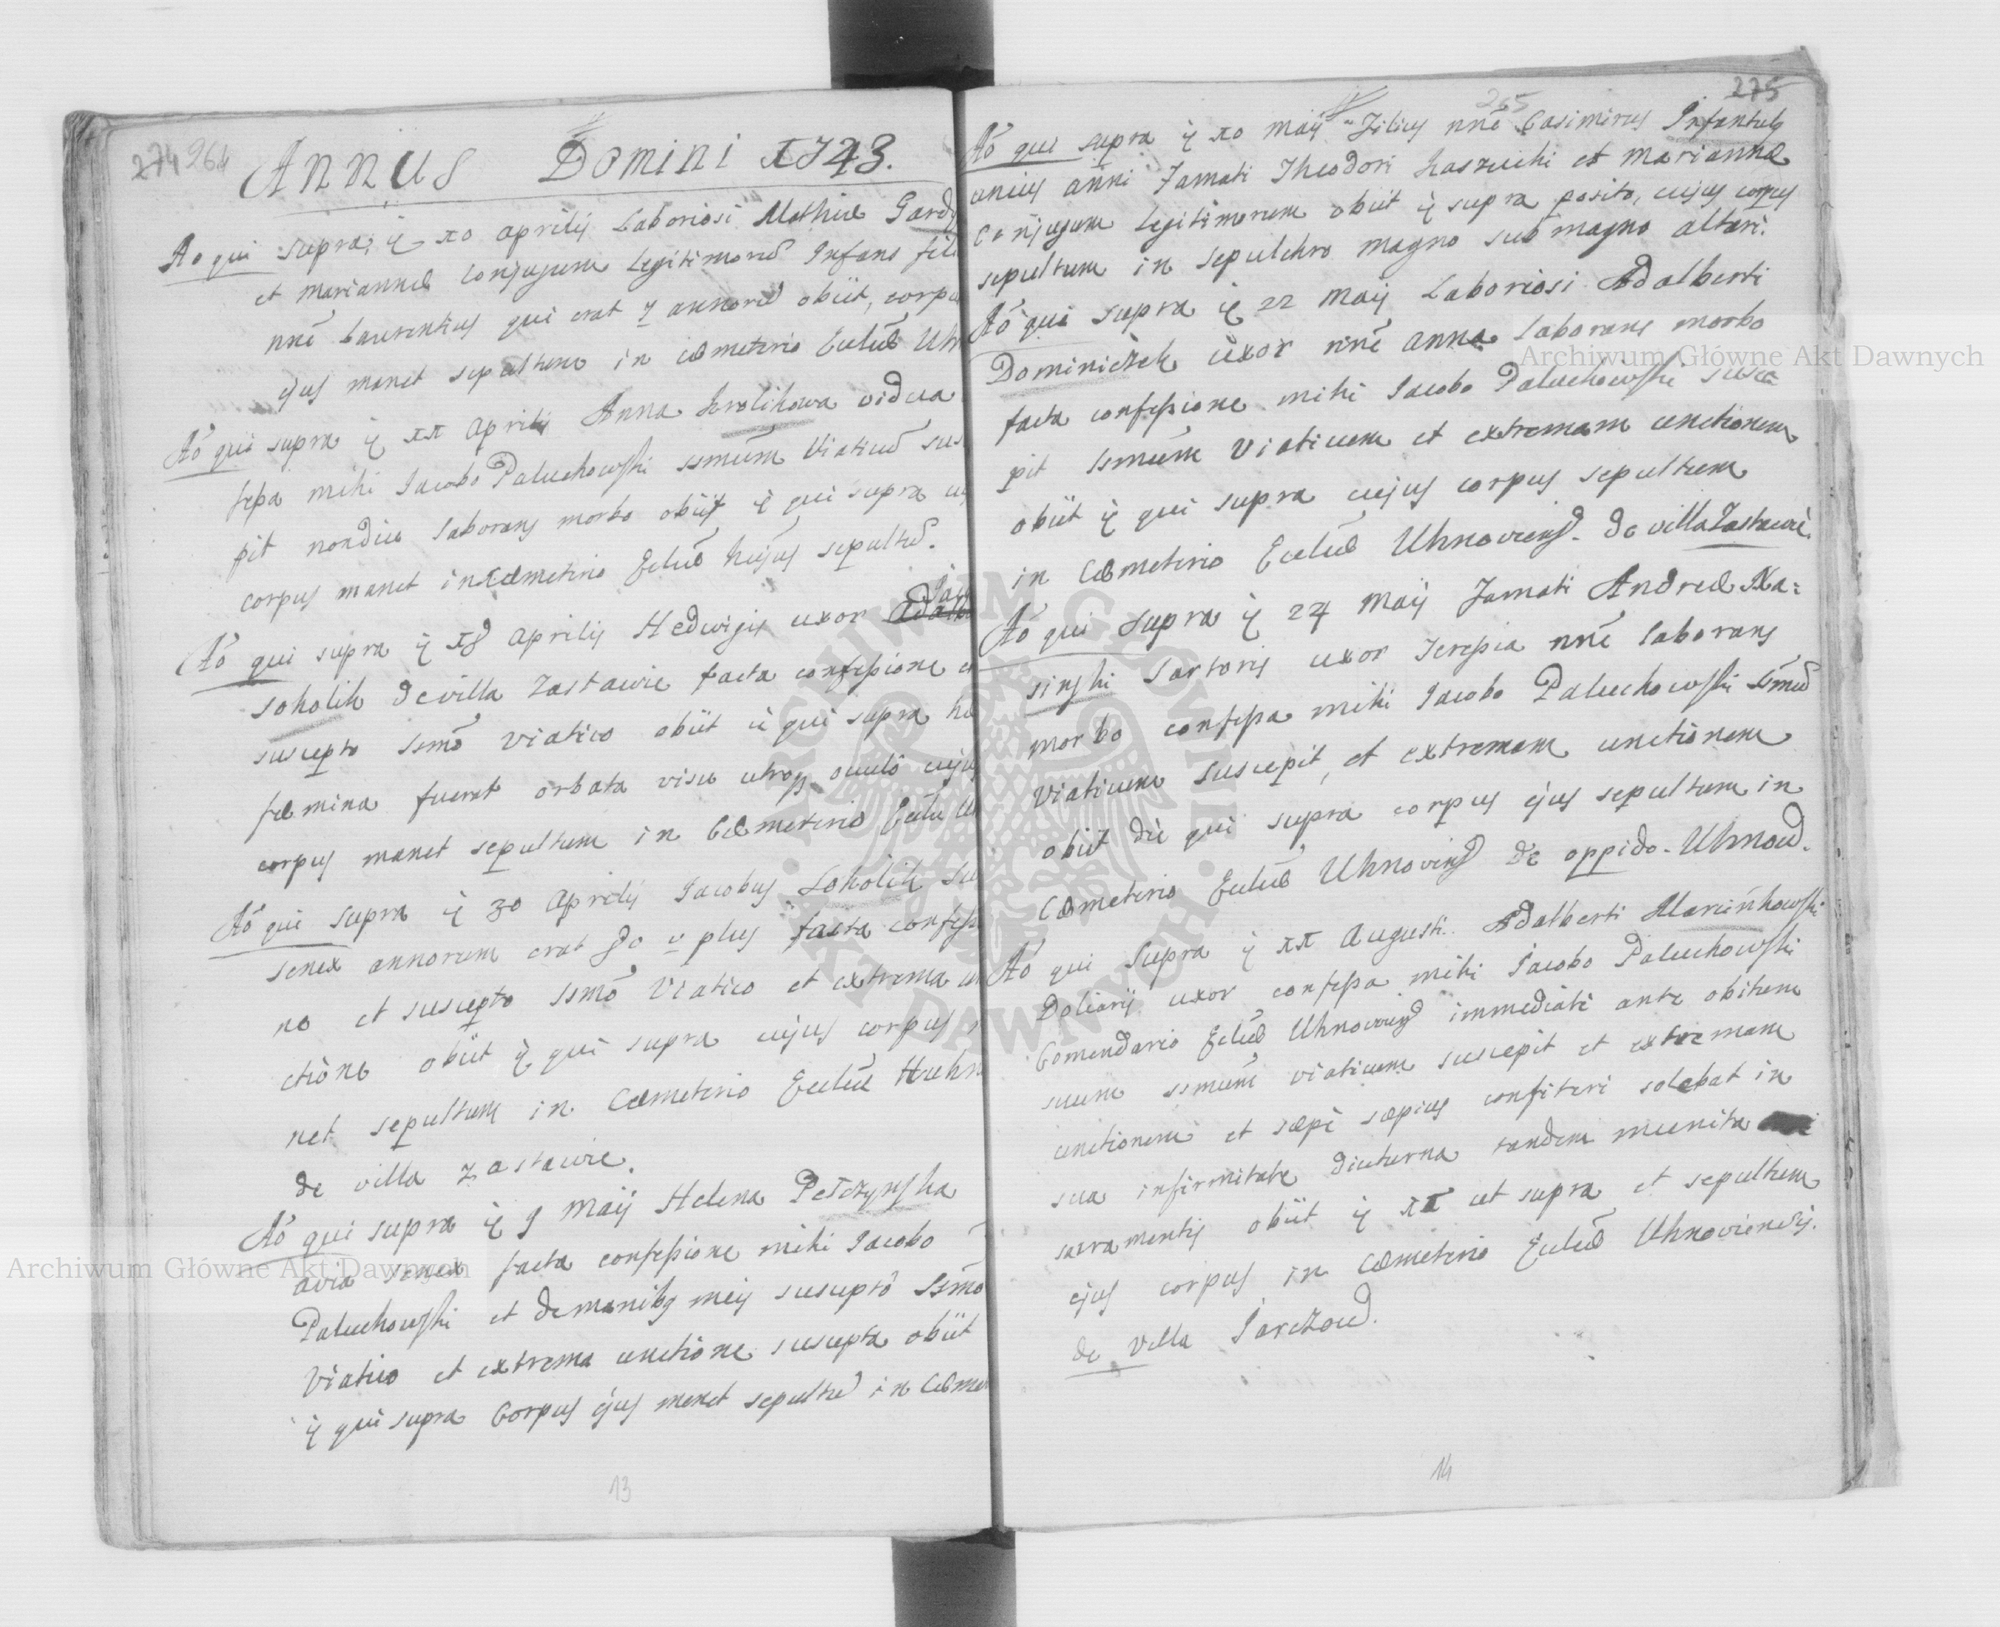 274 264
Annus Domini 1743.
Ao qui supra, ę 10 Aprilis Laboriosi Mathiæ
et Mariannæ Conjugum Legitimorū Infans
nnē Laurentius qui erat annorū obiit,
ejus manet sepultum in cœmeterio
Aō qui supra ę 11 Aprilis Anna Krolikowa vidua
mihi Jacobo Paluchowski ssmūm Viaticū
pit nondiu laborans morbo obiit ę qui supra
corpus manet in Cœmeterio hujus sepultū.
Aō qui supra ę 18 Aprilis Hedwigis uxor
Sokolik de villa Zastawie facta confessione
suscepto ssmō viatico obiit ę qui supra
fœmina fuerat orbata visu utroq oculo
corpus manet sepultum in Cœmeterio
Aō qui supra ę 30 Aprilis Jacobus Sokolik
senex annorum erat 80 v plus facta
no et suscepto ssmō Viatico et extrema
ctione obiit ę qui supra cujus corpus
net sepultum in Cœmeterio
de villa Zastawie.
Aō qui supra ę 9 Maij Helena Pełczynska
avia senex facta confessione mihi Jacobo
Paluchowski et de manibq meis suscepto ssmō
Viatico et extrema unctione suscepta obiit
ę qui supra Corpus ejus manet sepultū in
13
265 275
Aō qui supra ę 10 Maij Filius nnē Casimirus Infantulq
unius anni Famati Theodori Laszuchi et Mariannæ
Conjugum Legitimorum obiit ę supra posito, cujus corpus
sepultum in sepulchro magno sub magno altari.
Aō qui supra ę 22 Maij Laboriosi Adalberti
Dominiczek uxor nnē Anna laborans morbo
facta confessione mihi Jacobo Paluchowski susce
pit ssmūm Viaticum et extremam unctionem
obiit ę qui supra cujus corpus sepultum
in Cœmeterio Uhnoviens. de villa Zastawie.
Aō qui supra ę 24 Maij Famati Andreæ Ka=
sinski Sartoris uxor Teressia nnē laborans
morbo confessa mihi Jacobo Paluchowski ssmū
Viaticum suscepit, et extremam unctionem
obiit die qui supra corpus ejus sepultum in
Cœmeterio Uhnoviens de oppido Uhnow.
Aō qui supra ę 11 Augusti Adalberti Marcinkowski
Doliarij uxor confessa mihi Jacobo Paluchowski
Comendario Uhnoviens immediate ante obitum
suum ssmūm viaticum suscepit et extremam
unctionem et sæpe sæpius confiteri solebat in
sua infirmitate diuturna tandem munita
sacramentis obiit ę 11 ut supra et sepultum
ejus corpus in Cœmeterio Uhnoviensis.
de Villa Jarczow.
14
Archiwum Główne Akt Dawnych
Archiwum Główne Akt Dawnych
ARCHIWUM GŁÓWNE AKT DAWNYCH